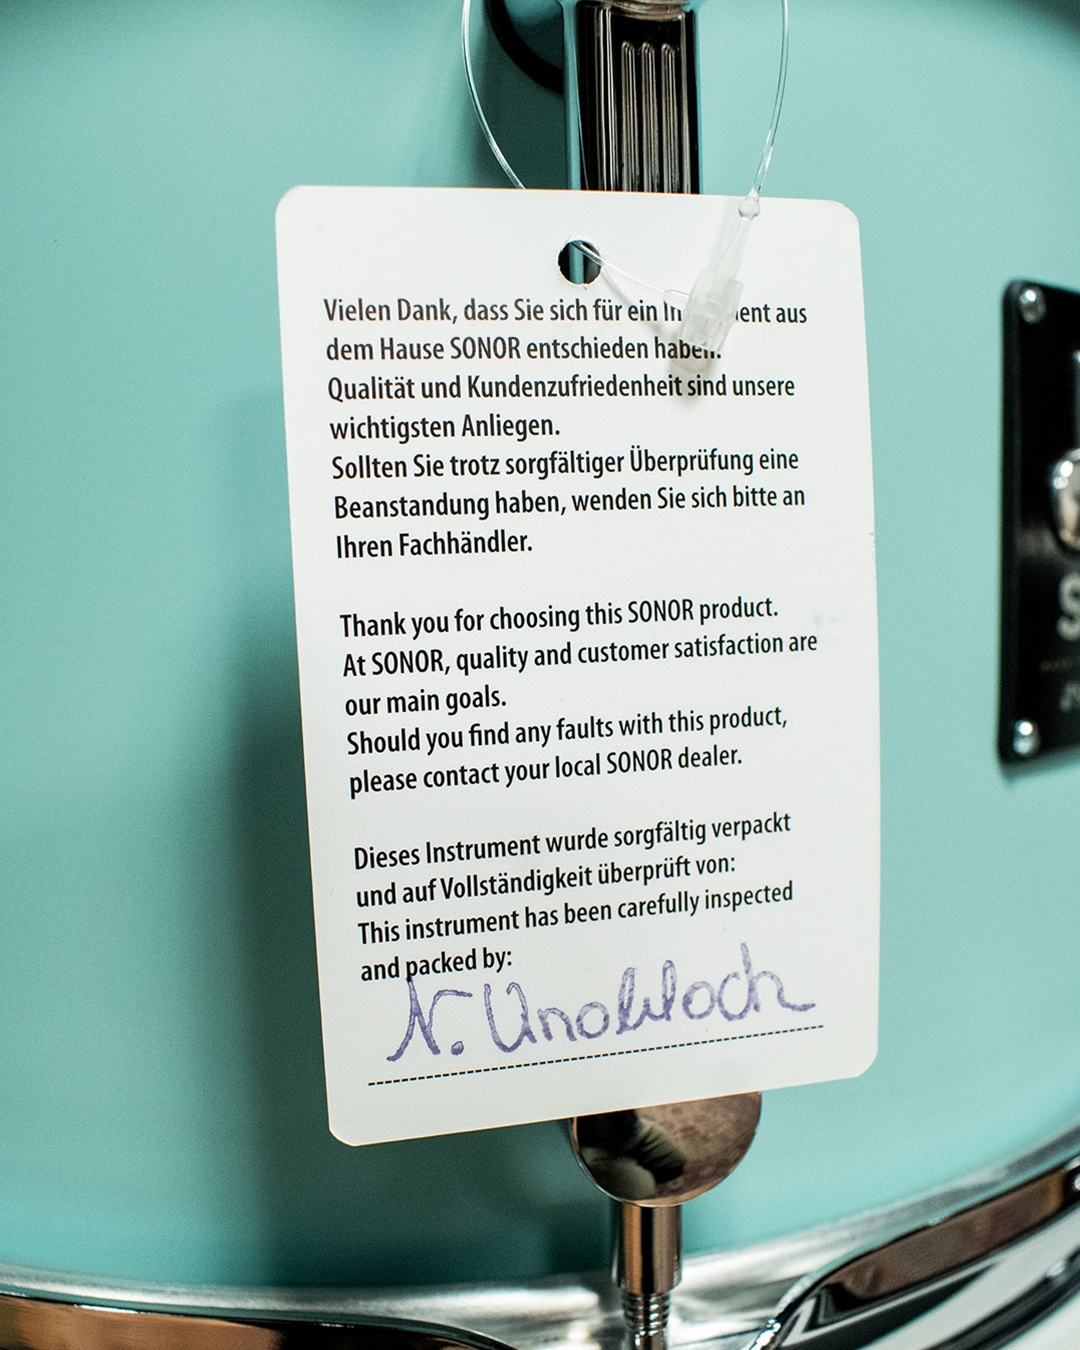 Vielen Dank, dass Sie sich für ein aus
dem Hause SONOR entschieden haben.
Qualität und Kundenzufriedenheit sind unsere
wichtigsten Anliegen.
Sollten Sie trotz sorgfältiger Überprüfung eine
Beanstandung haben, wenden Sie sich bitte an
Ihren Fachhändler.
Thank you for choosing this SONOR product.
At SONOR, quality and customer satisfaction are
our main goals.
Should you find any faults with this product,
please contact your local SONOR dealer.
Dieses Instrument wurde sorgfältig verpackt
und auf Vollständigkeit überprüft von:
This instrument has been carefully inspected
and packed by:
N.